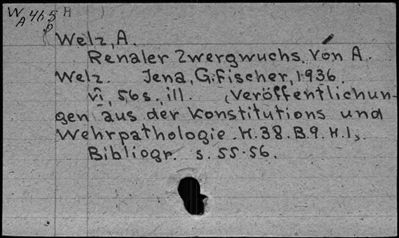 W H
A 465
P
Welz, A.
Renaler Zwergwuchs. Von A.
Welz. Jena, G. Fischer, 1936.
VI, 56 s., ill. (Veröffentlichun-
gen aus der Konstitutions und
Wehrpathologie. H. 38. B. 9. H. 1,
Bibliogr. s. 55-56.